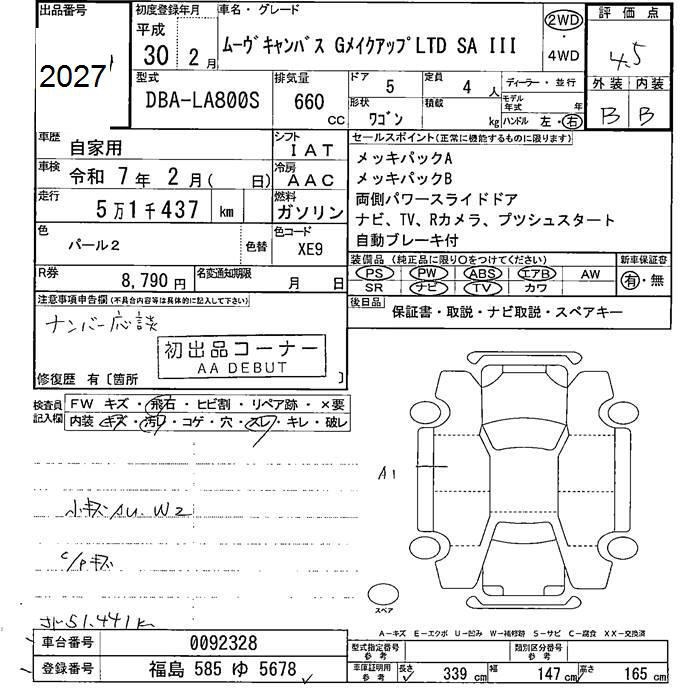 出品番号
2027
初度登録年月
平成
30年 2月
車名・グレード
ムーヴキャンバス GメイクアップLTD SA III
2WD
・
4WD
評価点
4.5
外装 内装
B B
型式
DBA-LA800S
排気量
660 CC
ドア 5
定員 4人
形状 ワゴン
積載 kg
ディーラー・並行
モデル年式 年
ハンドル 左・右
車歴
自家用
シフト
IAT
車検
令和 7年 2月(  日)
冷房
AAC
走行
5万1千437 km
燃料
ガソリン
色
パール2
色替
色コード
XE9
R券
8,790円
名変通知期限
月 日
セールスポイント(正常に機能するものに限ります)
メッキパックA
メッキパックB
両側パワースライドドア
ナビ、TV、Rカメラ、プツシュスタート
自動ブレーキ付
装備品(純正品に限り○をつけてください)
PS PW ABS エアB AW
SR ナビ TV カワ
新車保証書
有・無
後日品
保証書・取説・ナビ取説・スペアキー
注意事項申告欄(不具合内容等は具体的に記入して下さい)
ナンバー応談
初出品コーナー
AA DEBUT
修復歴 有〔箇所 〕
検査員記入欄
FW キズ・飛石・ヒビ割・リペア跡・×要
内装・キズ・汚レ・コゲ・穴・スレ・キレ・破レ
A1
小キズAU.W2
C/Pキズ
51.441k
スペア
A−キズ E−エクボ U−凹み W−補修跡 S−サビ C−腐食 XX−交換済
車台番号
0092328
登録番号
福島 585 ゆ 5678
型式指定番号
参考
類別区分番号
参考
車庫証明用
参考
長さ 339 cm
幅 147 cm
高さ 165 cm